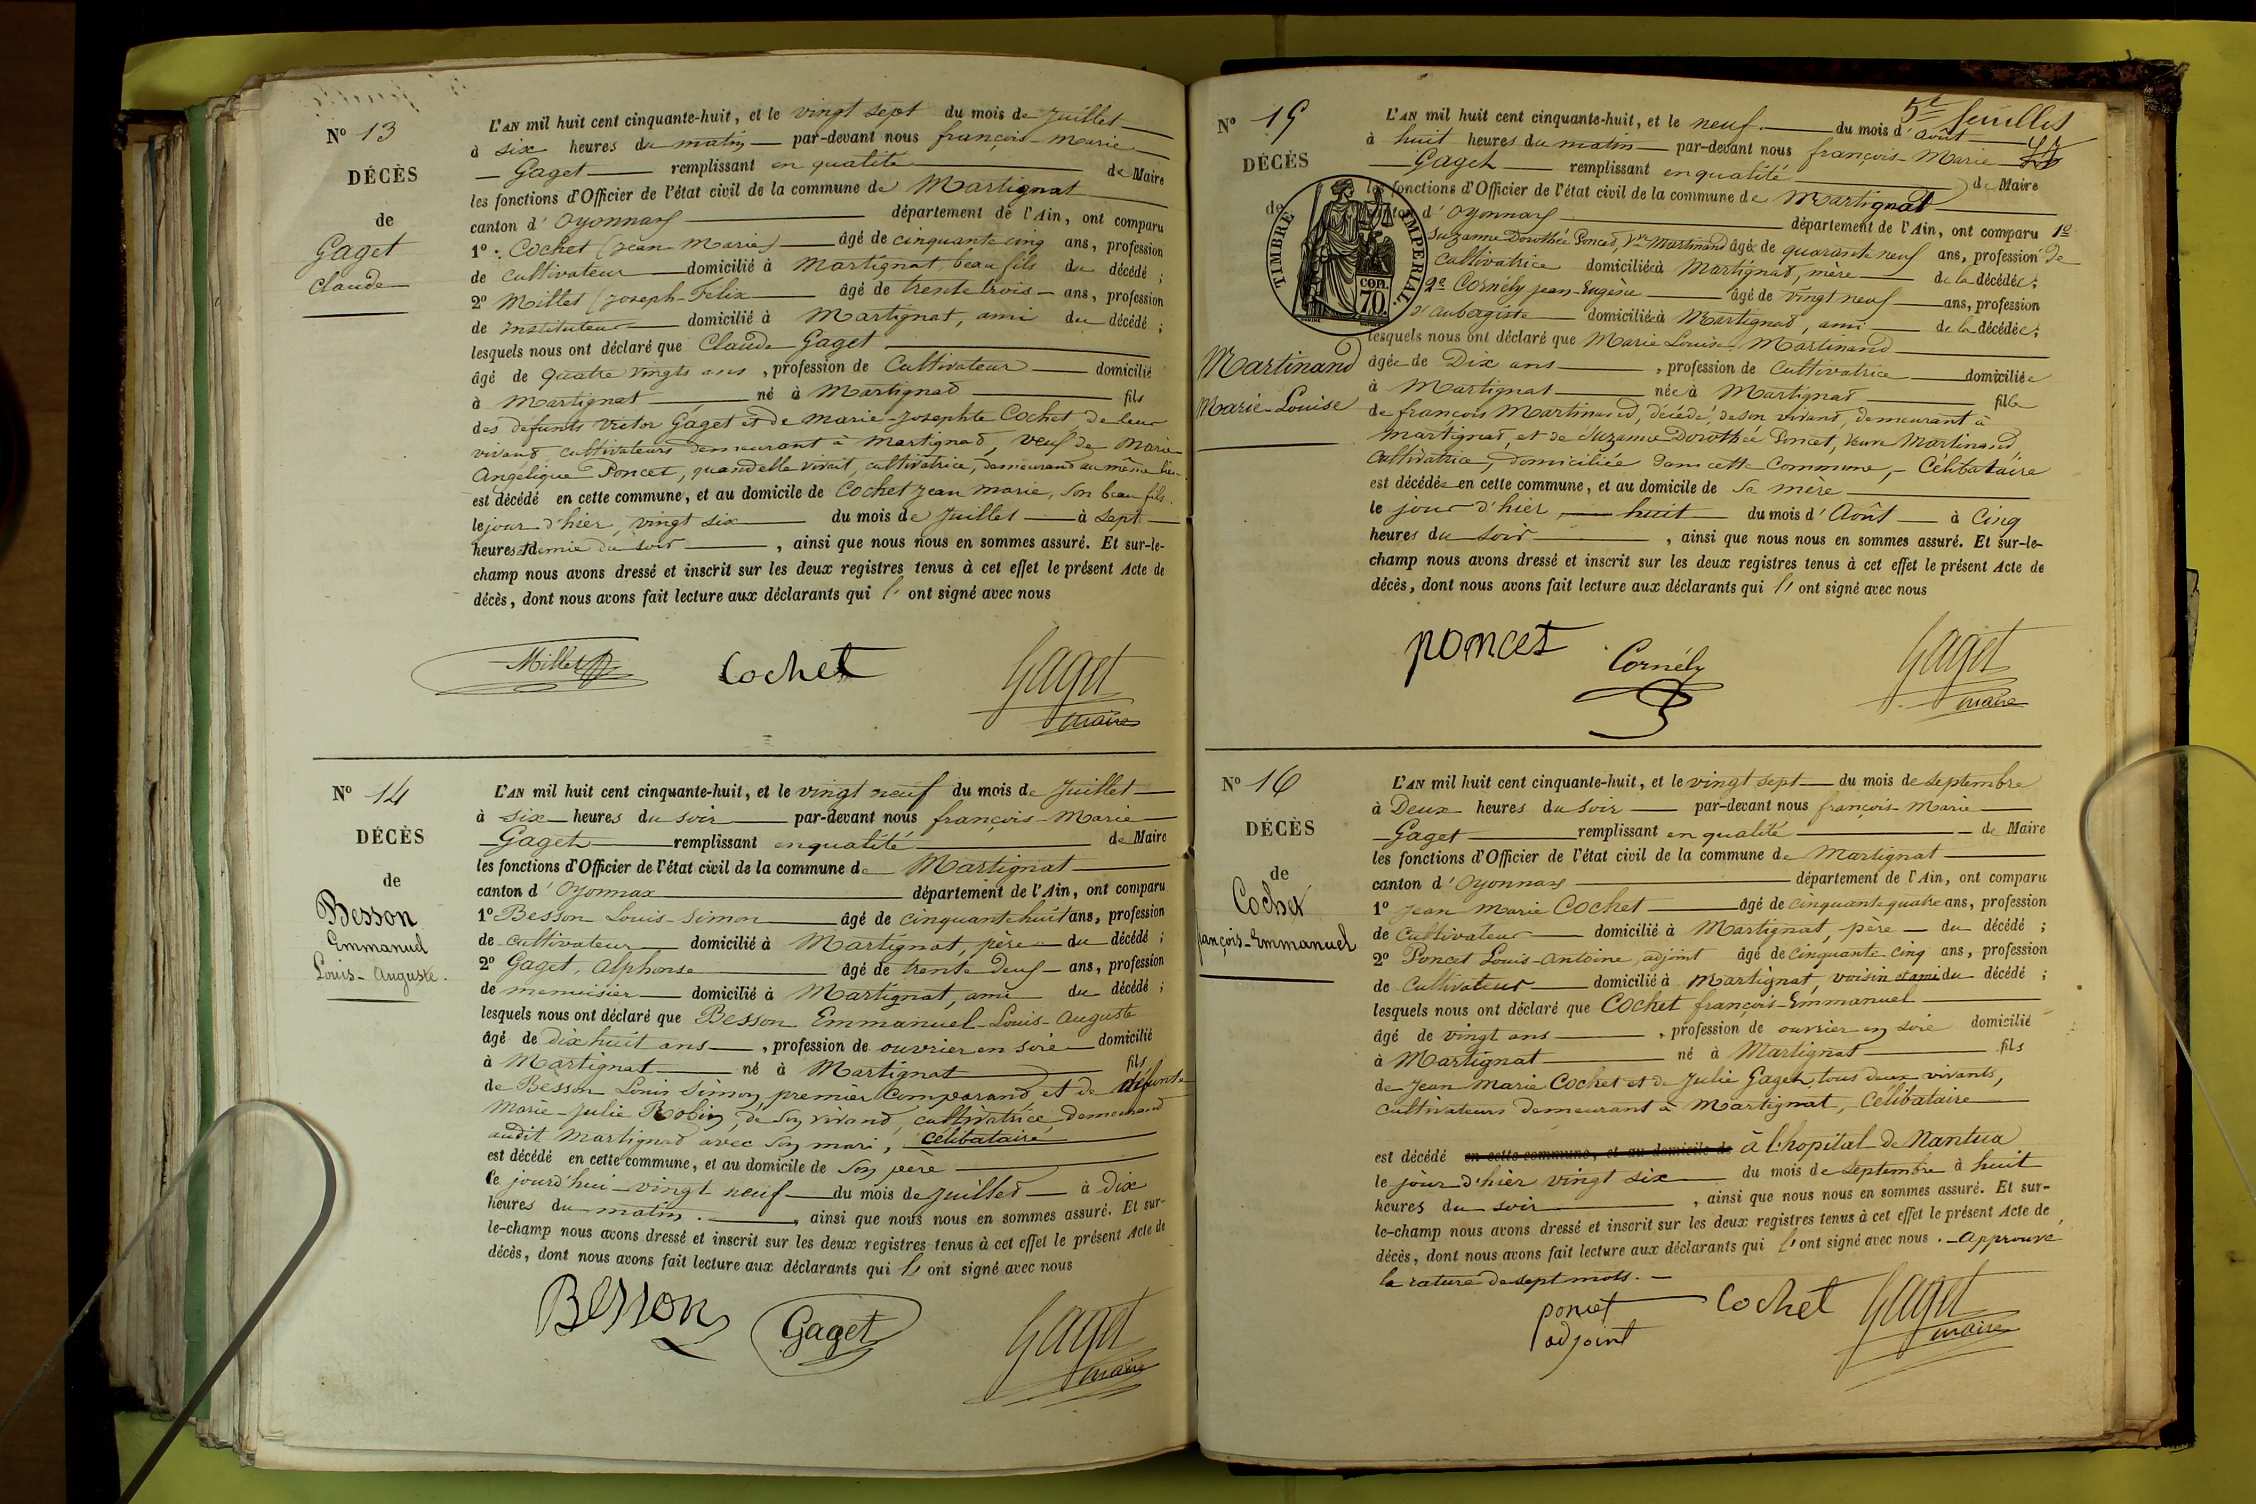 Nº 13
DÉCÈS
de
Gaget
Claude
L'AN mil huit cent cinquante-huit, et le vingt sept du mois de Juillet
à six heures du matin par-devant nous françois-marie
Gaget remplissant en qualité de Maire
les fonctions d'Officier de l'état civil de la commune de Martignat
canton d'Oyonnax département de l'Ain, ont comparu
1º Cochet (jean-Marie) âgé de cinquante cinq ans, profession
de cultivateur domicilié à Martignat, beau fils du décédé ;
2º Millet (joseph-Félix âgé de trente trois ans, profession
de instituteur domicilié à Martignat, ami du décédé ;
lesquels nous ont déclaré que Claude Gaget
âgé de quatre vingts ans, profession de Cultivateur domicilié
à Martignat né à Martignat fils
des défunts Victor Gaget et de Marie-Josephte Cochet, de leur
vivant, cultivateurs demeurant à Martignat, veuf de Marie
Angélique Poncet, quand elle vivait, cultivatrice, demeurand au même lieu
est décédé en cette commune, et au domicile de Cochet jean marie, son beau fils
le jour d'hier, vingt six du mois de Juillet à sept
heures et demie du soir, ainsi que nous nous en sommes assuré. Et sur-le-
champ nous avons dressé et inscrit sur les deux registres tenus à cet effet le présent Acte de
décès, dont nous avons fait lecture aux déclarants qui l'ont signé avec nous
Millet Cochet Gaget
maire
Nº 14
DÉCÈS
de
Besson
Emmanuel
Louis-Auguste.
L'AN mil huit cent cinquante-huit, et le vingt neuf du mois de Juillet
à six heures du soir par-devant nous françois-Marie
Gaget remplissant en qualité de Maire
les fonctions d'Officier de l'état civil de la commune de Martignat
canton d'Oyonnax département de l'Ain, ont comparu
1º Besson Louis-simon âgé de cinquante huit ans, profession
de cultivateur domicilié à Martignat, père du décédé ;
2º Gaget, Alphonse âgé de trente deux ans, profession
de menuisier domicilié à Martignat, ami du décédé ;
lesquels nous ont déclaré que Besson Emmanuel-Louis-Auguste
âgé de dix huit ans, profession de ouvrier en soie domicilié
à Martignat né à Martignat fils
de Besson Louis Simon, premier Comparand et de défunte
Marie-Julie Robin, de son vivand, cultivatrice, demeurand
audit Martignat avec son mari, célibataire
est décédé en cette commune, et au domicile de son père
Ce jourd'hui vingt neuf du mois de Juillet à dix
heures du matin, ainsi que nous nous en sommes assuré. Et sur-
le-champ nous avons dressé et inscrit sur les deux registres tenus à cet effet le présent Acte de
décès, dont nous avons fait lecture aux déclarants qui l'ont signé avec nous
Besson Gaget Gaget
maire
5e feuillet
Nº 15
DÉCÈS
de
TIMBRE IMPERIAL.
COM.
70.
Martinand
Marie-Louise
L'AN mil huit cent cinquante-huit, et le neuf du mois d'Août
à huit heures du matin par-devant nous françois-Marie
Gaget remplissant en qualité de Maire
les fonctions d'Officier de l'état civil de la commune de Martignat
canton d'Oyonnax département de l'Ain, ont comparu 1º
Suzanne Dorothée Poncet, Vve Martinand âgée de quarante neuf ans, profession de
Cultivatrice domiciliée à Martignat, mère de la décédée ;
2º Cornély jean-Eugène âgé de vingt neuf ans, profession
d'Aubergiste domicilié à Martignat, ami de la décédée ;
lesquels nous ont déclaré que Marie Louise Martinand
âgée de Dix ans, profession de Cultivatrice domiciliée
à Martignat née à Martignat fille
de françois Martinand, décédé, de son vivant, demeurant à
Martignat, et de Suzanne Dorothée Poncet, Veuve Martinand
Cultivatrice, domiciliée dans cette Commune, Célibataire
est décédée en cette commune, et au domicile de sa mère
le jour d'hier, huit du mois d'Août à Cinq
heures du soir, ainsi que nous nous en sommes assuré. Et sur-le-
champ nous avons dressé et inscrit sur les deux registres tenus à cet effet le présent Acte de
décès, dont nous avons fait lecture aux déclarants qui l'ont signé avec nous
poncet Cornély Gaget
maire
Nº 16
DÉCÈS
de
Cochet
françois-Emmanuel
L'AN mil huit cent cinquante-huit, et le vingt sept du mois de septembre
à Deux heures du soir par-devant nous françois-Marie
Gaget remplissant en qualité de Maire
les fonctions d'Officier de l'état civil de la commune de Martignat
canton d'Oyonnax département de l'Ain, ont comparu
1º Jean Marie Cochet âgé de cinquante quatre ans, profession
de Cultivateur domicilié à Martignat, père du décédé ;
2º Poncet Louis-Antoine, adjoint âgé de Cinquante cinq ans, profession
de Cultivateur domicilié à Martignat, voisin et ami du décédé ;
lesquels nous ont déclaré que Cochet françois-Emmanuel
âgé de vingt ans, profession de ouvrier en soie domicilié
à Martignat né à Martignat fils
de Jean Marie Cochet et de Julie Gaget, tous deux vivants,
cultivateurs demeurant à Martignat, Célibataire
est décédé en cette commune, et au domicile de à l'hopital de Nantua
le jour d'hier vingt six du mois de septembre à huit
heures du soir, ainsi que nous nous en sommes assuré. Et sur-
le-champ nous avons dressé et inscrit sur les deux registres tenus à cet effet le présent Acte de
décès, dont nous avons fait lecture aux déclarants qui l'ont signé avec nous. Approuvé
la rature de sept mots.
poncet Cochet Gaget
adjoint maire